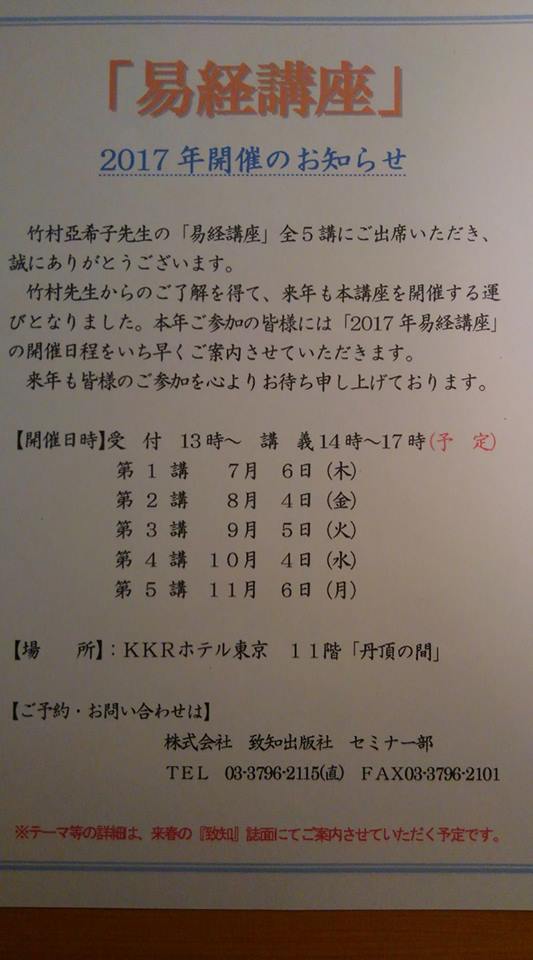 「易経講座」
2017年開催のお知らせ
竹村亞希子先生の「易経講座」全５講にご出席いただき、
誠にありがとうございます。
竹村先生からのご了解を得て、来年も本講座を開催する運
びとなりました。本年ご参加の皆様には「2017年易経講座」
の開催日程をいち早くご案内させていただきます。
来年も皆様のご参加を心よりお待ち申し上げております。
【開催日時】受　付　13時～　講　義14時～17時(予　定)
第　１　講　　７月　６日（木）
第　２　講　　８月　４日（金）
第　３　講　　９月　５日（火）
第　４　講　１０月　４日（水）
第　５　講　１１月　６日（月）
【場　　所】：ＫＫＲホテル東京　１１階「丹頂の間」
【ご予約・お問い合わせは】
株式会社　致知出版社　セミナー部
ＴＥＬ　03-3796-2115(直)　ＦＡＸ03-3796-2101
※テーマ等の詳細は、来春の『致知』誌面にてご案内させていただく予定です。